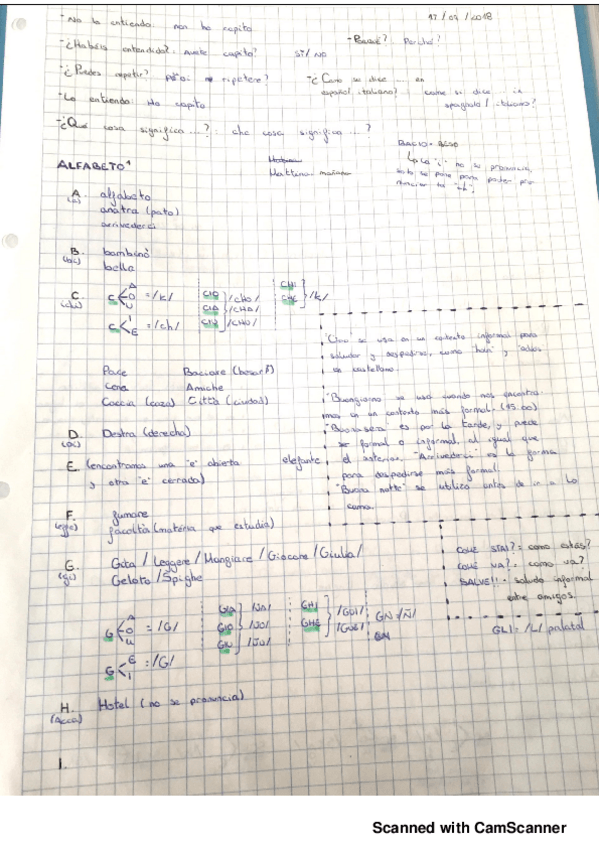 17/09/2018
-No lo entiendo: non ho capito
-¿Habéis entendido?: Avete capito? Sì/No
-Porqué? Perché?
-¿Puedes repetir? Puoi ripetere?
-¿Como se dice ... en español, italiano? come si dice in spagnolo/italiano?
-Lo entiendo: Ho capito
-¿Qué cosa significa ...?: che cosa significa ...?
BACIO = BESO
La "i" no se pronuncia, solo se pone para poder pronunciar la "ch".
ALFABETO
Mattina = mañana
A. (a) alfabeto
anatra (pato)
arrivederci
B. (bi) bambino
bella
C. (chi) C A O U = /k/
CIO /CHO/
CIA /CHA/
CIU /CHU/
CHI CHE /k/
C I E = /ch/
"Ciao" se usa en un contexto informal para saludar y despedirse, como "hola" y "adiós" en castellano.
Pace Baciare (besar)
Cena Amiche
Caccia (caza) Città (ciudad)
"Buongiorno" se usa cuando nos encontramos en un contexto más formal. (15.00)
"Buonasera" es por la tarde, y puede ser formal o informal, al igual que el anterior. "Arrivederci" es la forma para despedirse más formal.
"Buona notte" se utiliza antes de ir a la cama.
D. (di) Destra (derecha)
E. (encontramos una "e" abierta elefante
y otra "e" cerrada)
F. (effe) fumare
facoltà (materia que estudia)
G. (gi) Gita / Leggere / Mangiare / Giocare / Giulia /
Gelato / Spighe
COME STAI? = como estás?
COME VA? = como va?
SALVE!! = saludo informal entre amigos.
G A O U = /G/
GIA /JA/
GIO /JO/
GIU /JU/
GHI /GUI/
GHE /GUE/
GN /Ñ/
GLI = /L/ palatal
G E I = /G/
H. (Acca) Hotel (no se pronuncia)
I.
Scanned with CamScanner